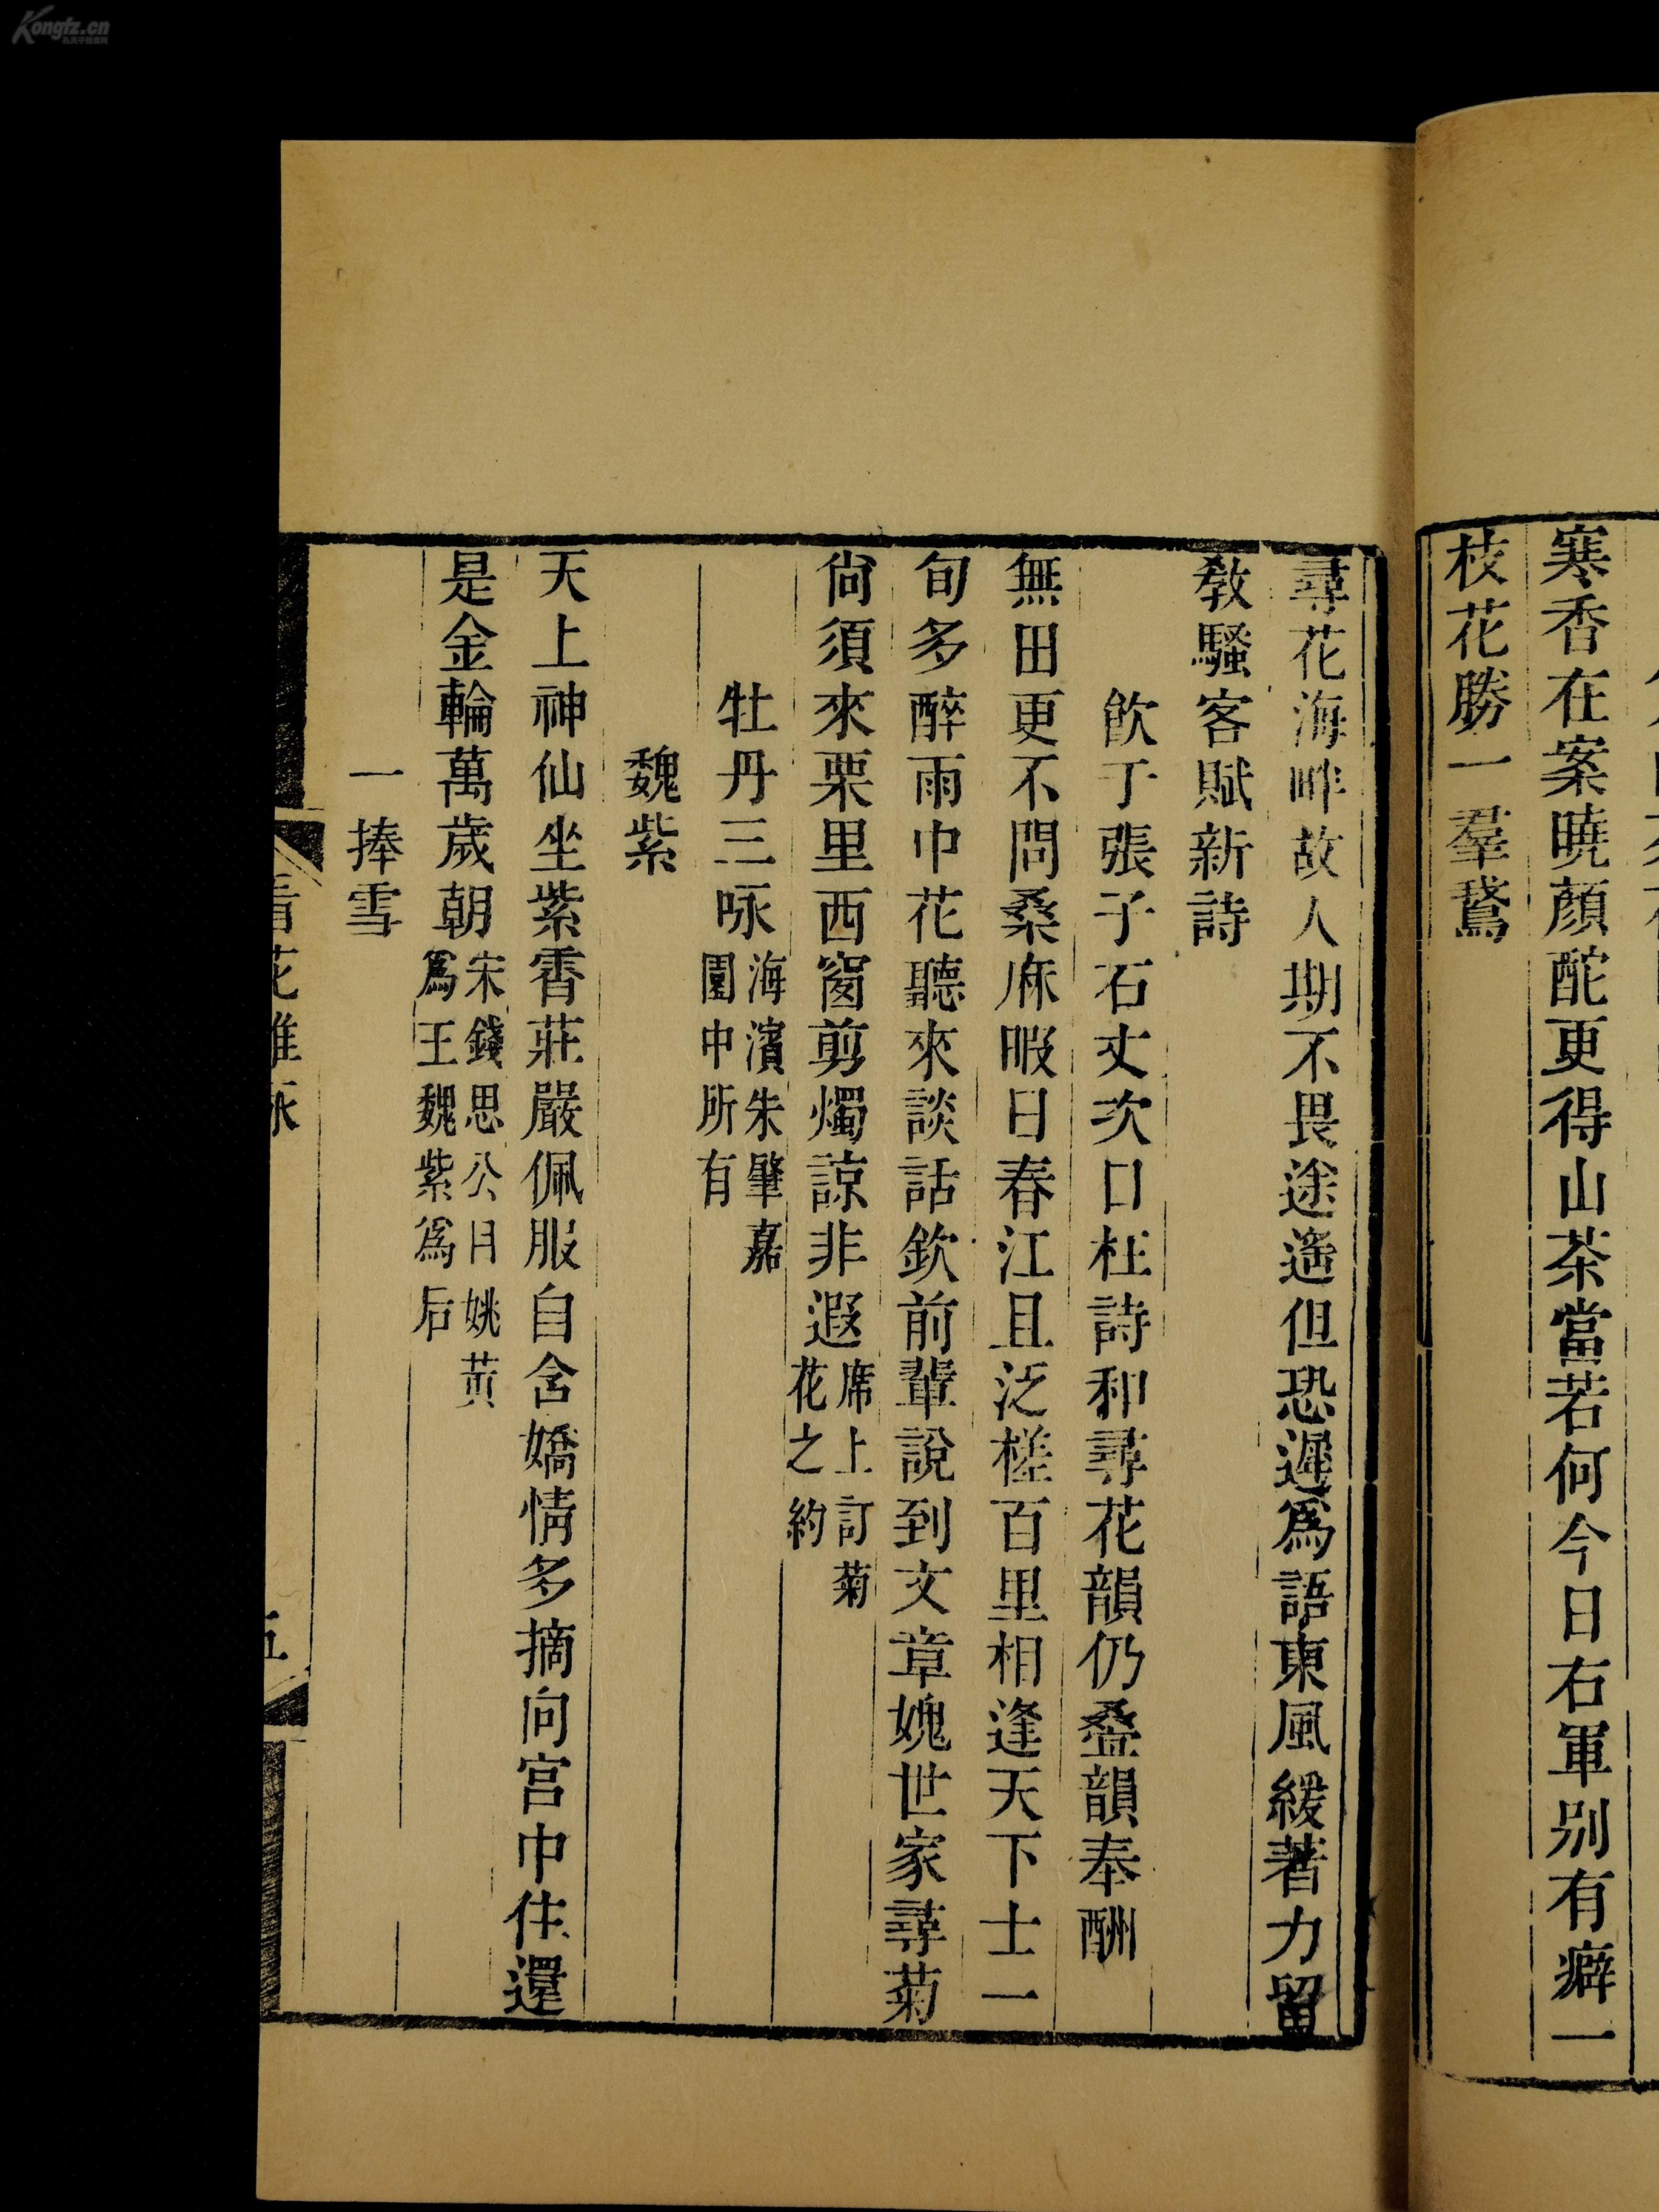 寒香在案曉顏酡更得山茶當若何今日右軍別有癖一
枝花勝一羣鵞
尋花海畔故人期不畏途遙但恐遲爲語東風緩著力留
敎騷客賦新詩
飮于張子石丈次口枉詩和尋花韻仍疊韻奉酬
無田更不問桑麻暇日春江且泛槎百里相逢天下士一
旬多醉雨中花聽來談話欽前輩說到文章媿世家尋菊
尙須來栗里西窗剪燭諒非遐席上訂菊
花之約
牡丹三咏海濱朱肇嘉
園中所有
魏紫
天上神仙坐紫霄莊嚴佩服自含嬌情多摘向宮中住還
是金輪萬歲朝宋錢思公曰姚黃
爲王魏紫爲后
一捧雪
看花雜咏
五
Kongfz.cn